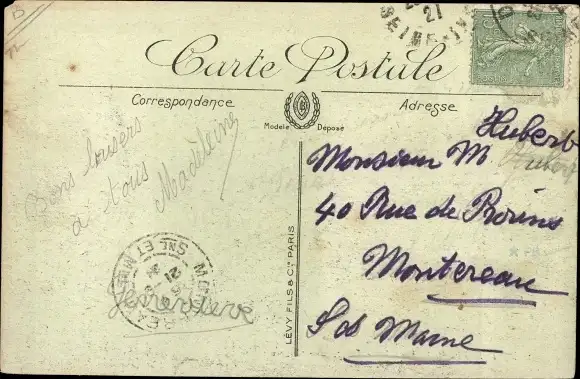 Carte Postale
Correspondance
Adresse
Modèle Déposé
LÉVY FILS & Cie PARIS
Bons baisers
à tous
Madeleine
Hubert
Monsieur M
40 Rue de Provins
Montereau
S et Marne
Geneviève
21
SNE ET M